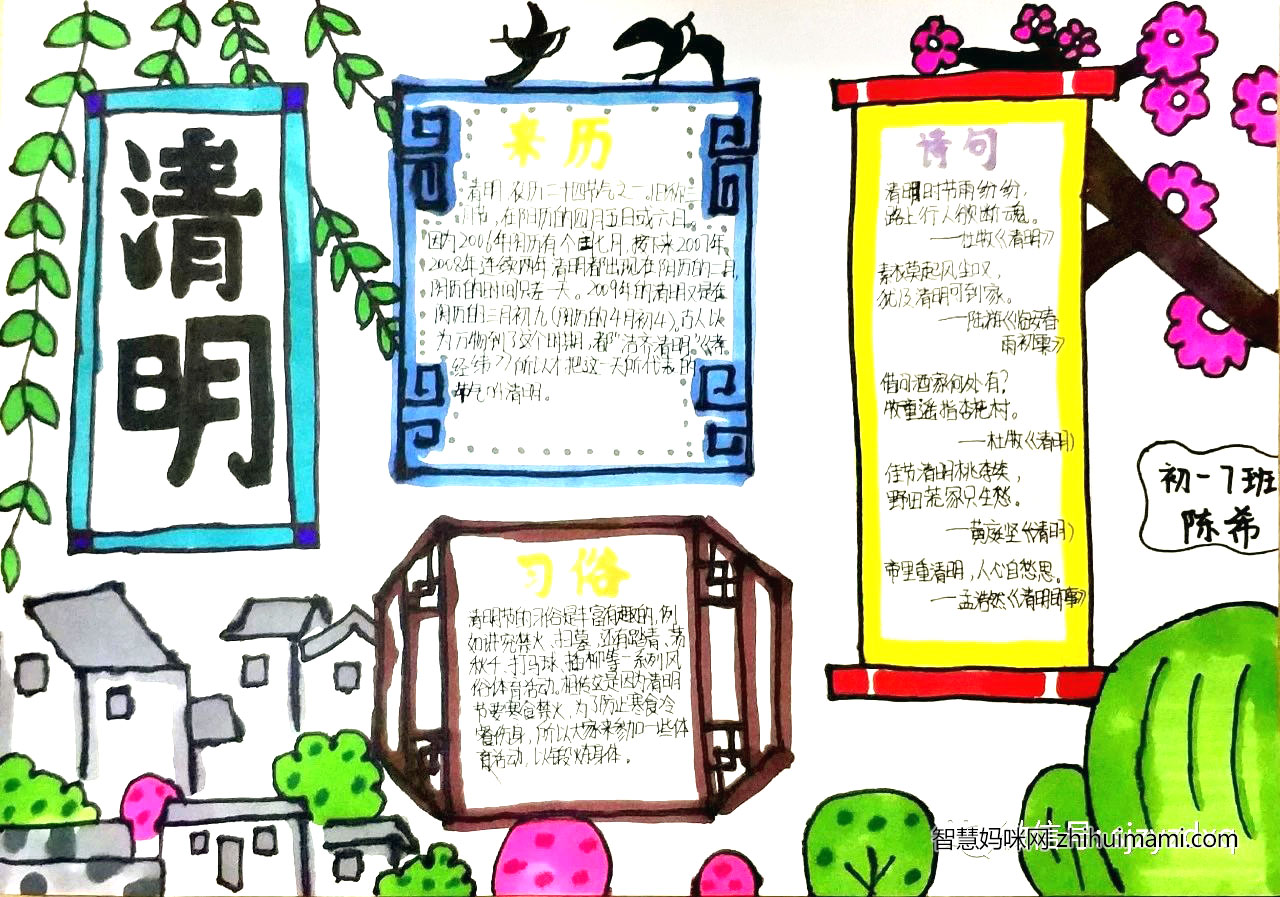 清
明
来历
清明,农历二十四节气之一,旧称三
月节,在阳历的四月五日或六日。
因为2006年闰历有个 七月,接下来2007年
2008年连续两年清明都出现在阴历的二月,
阴历的时间只差一天。2009年的清明又是在
阴历的三月初九(阳历的4月初4)。古人以
为万物到了这个时期,都“洁齐清明”《孝
经纬》所以才把这一天所代表的
节气叫清明。
习俗
清明节的习俗是丰富有趣的,例
如讲究禁火、扫墓,还有踏青、荡
秋千、打马球、插柳等一系列风
俗体育活动。相传这是因为清明
节要寒食禁火,为了防止寒食冷
餐伤身,所以大家来参加一些体
育活动,以锻炼身体。
诗句
清明时节雨纷纷,
路上行人欲断魂。
——杜牧《清明》
素衣莫起风尘叹,
犹及清明可到家。
——陆游《临安春
雨初霁》
借问酒家何处有?
牧童遥指杏花村。
——杜牧《清明》
佳节清明桃李笑,
野田荒冢只生愁。
——黄庭坚《清明》
帝里重清明,人心自愁思。
——孟浩然《清明即事》
初一7班
陈希
智慧妈咪网 zhihuimami.com